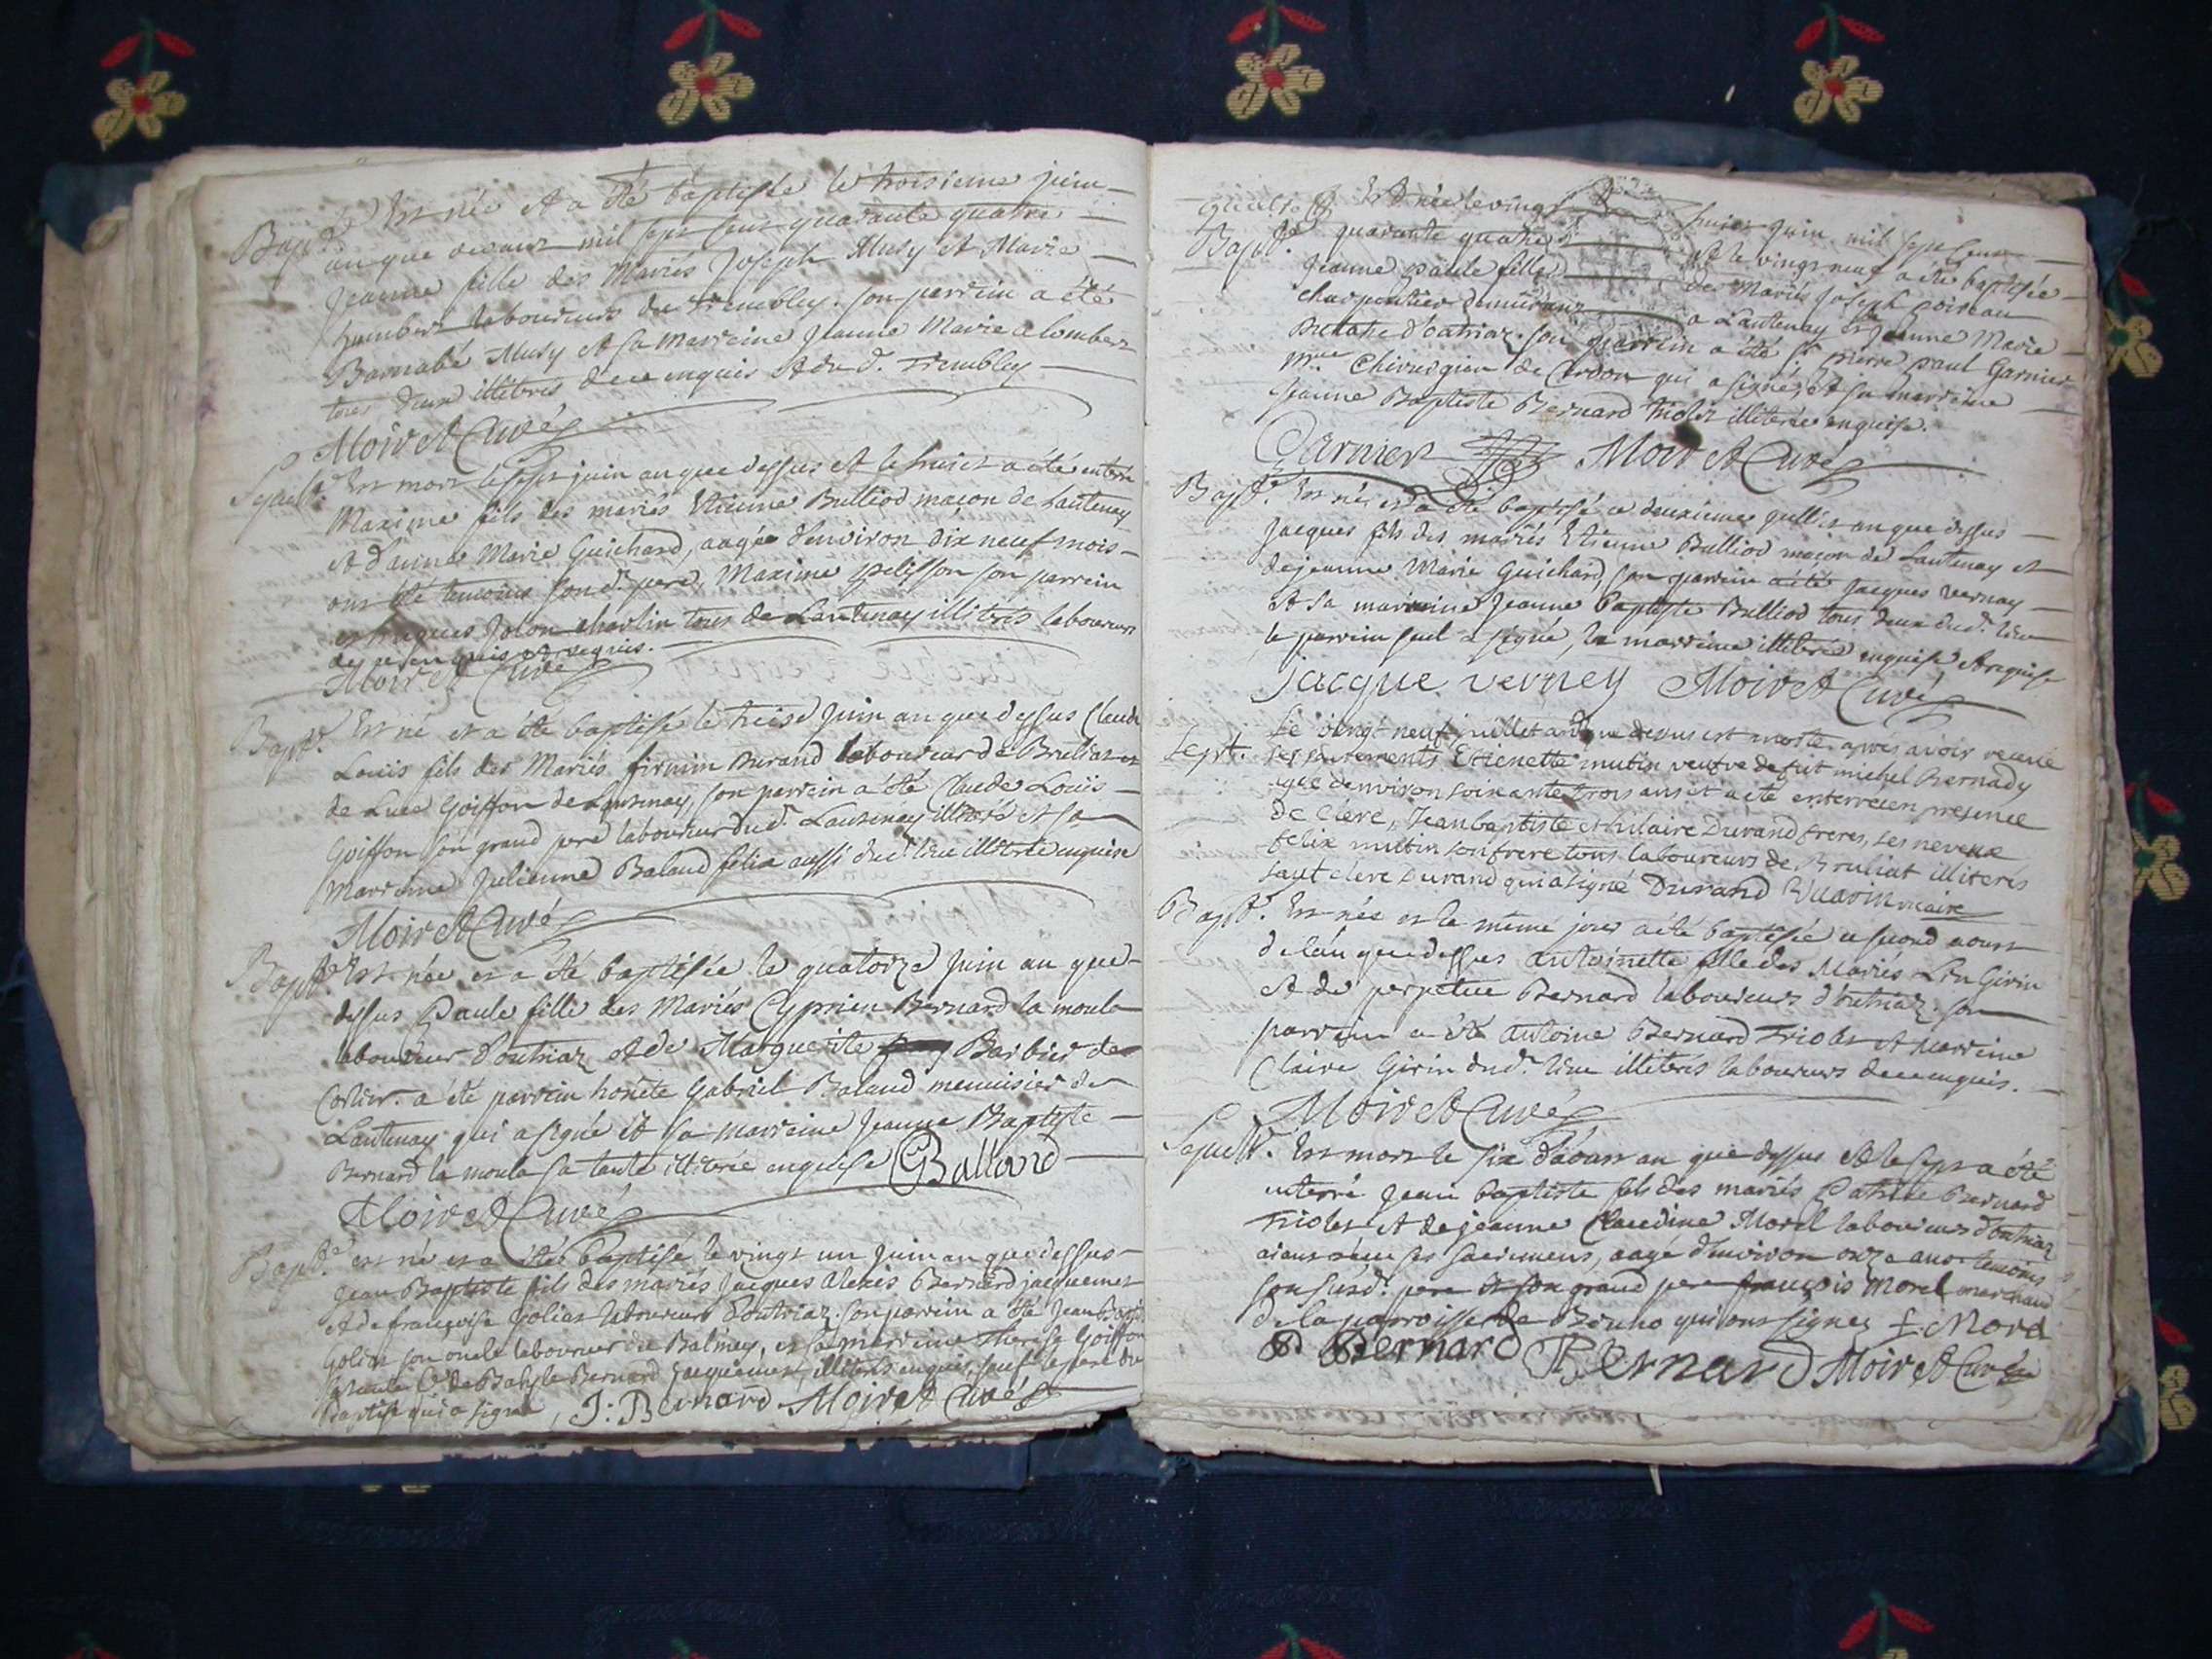 Bapt.e Est née et a été baptisée le troisieme juin
an que dessus mil sept cent quarante quatre
Jeanne fille des Mariés Joseph Musy et Marie
humbert laboureurs du Trembley. son parrein a été
Barnabé Musy et sa Marreine Jeanne Marie
tous deux illiterés de ce enquis et du d. Trembley
Moiret Curé
Sepult. Est mort le sept juin an que dessus et le huict a été enterré
Maxime fils des mariés Etienne Bulliod maçon de Lantenay
et d'anne Marie Guichard, aagé d'environ dix neuf mois
ont été temoins son d. pere, Maxime pelisson son parrein
et Jaques Jolon charlin tous de Lantenay illiterés laboureurs
de ce enquis et requis.
Moiret Curé
Bapt. Est né et a été baptisé le treise Juin an que dessus Claude
Louis fils des Mariés firmin Durand laboureur de Bruliat et
de Luce Goiffon de Lantenay, son parrein a été Claude Louis
Goiffon son grand pere laboureur dud. Lantenay illiteré et sa
marreine Julienne Baland felix aussi dud. lieu illiterée enquise
Moiret Curé
Bapt.e Est née et a été baptisée le quatorze Juin an que
dessus Paule fille des Mariés Cyprien Bernard la moula
laboureur d'outriaz et de Marguerite Barbier de
Corlier. a été parrein honête Gabriel Baland menuisier de
Lantenay qui a signé et sa marreine Jeanne Baptiste
Bernard la moula sa tante illiterée enquise GBalland
Moiret Curé
Bapt.e est né et a été Baptisé le vingt un Juin an que dessus
Jean Baptiste fils des mariés Jacques Alexis Bernard jacquemet
et de françoise Goliat laboureurs d'outriaz. son parrein a été Jean Bapt.
Goliat son oncle laboureur du Balmey, et sa marreine Therese Goiffon
Bernard Jacquemet, illiterés enquis, sauf le pere du
Baptisé qui a signé, J: Bernard Moiret Curé
Est née le vingt huict Juin mil sept cent
Bapt.e quarante quatre et le vingt neuf a été baptisée
Jeanne paule fille des Mariés Joseph poiseau
charpentier demeurant a Lantenay et Jeanne Marie
d'outriaz. son parrein a été Sr pierre paul Garnier
M.re Chirurgien de Cerdon qui a signé, et sa marreine
Jeanne Baptiste Bernard triolet illiterée enquise.
Garnier Moiret Curé
Bapt.e Est né et a été baptisé ce deuxieme Juillet an que dessus
Jacques fils des mariés Etienne Bulliod maçon de Lantenay et
de jeanne Marie Guichard, son parrein a été Jacques Vernay
et sa marreine Jeanne baptiste Bulliod tous deux dud. lieu
le parrein seul a signé, la marreine illiterée enquise et requise
jacque verney Moiret Curé
Le vingt neuf juillet an que dessus est morte apres avoir receue
Sept. ses sacrements Etienette mutin veufve de fut michel Bernady
agée d'environ soixante trois ans et a eté enterree en presence
de Clere, Jean baptiste et hilaire Durand freres, ses neveux
felix mutin son frere tous laboureurs de Bruliat illiterés
sauf clere Durand qui a signé Durand vicaire
Bapt.e Est née et le même jour a été baptisée ce second aoust
de l'an que dessus antoinette fille des Mariés Lin Girin
et de perpétue Bernard laboureurs d'outriaz. son
parrein a été antoine Bernard Triolet et marreine
Claire Girin dud. lieu illiterés laboureurs de ce enquis.
Moiret Curé
Sepult.e Est mort le six d'aoust an que dessus et le sept a été
enterré Jean baptiste fils des mariés Patrice Bernard
Triolet et de jeanne Claudine Morel laboureurs d'outriaz
aiant receu ses sacremens, aagé d'environ onze ans temoins
son susd. pere et son grand pere françois Morel marchand
de la parroisse de qui ont signez f. Morel
P Bernard Bernard Moiret Curé